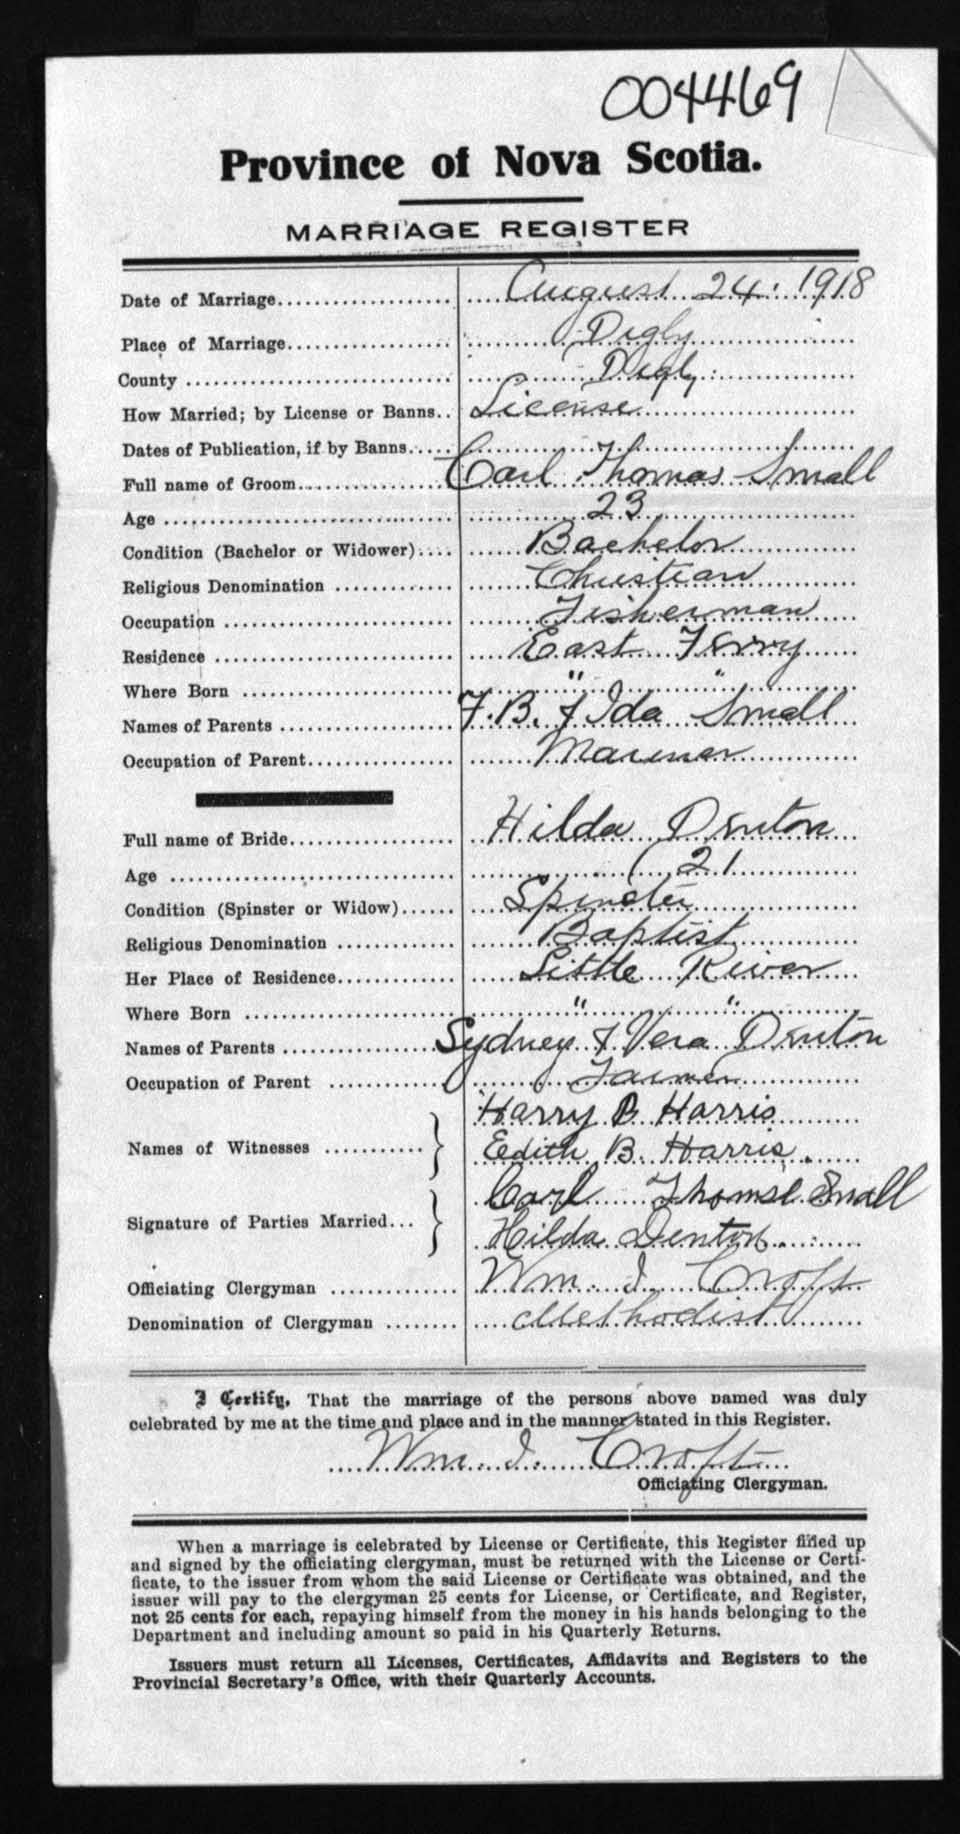 004469
Province of Nova Scotia.
MARRIAGE REGISTER
Date of Marriage.................... August 24. 1918
Place of Marriage................... Digby
County .............................. Digby
How Married; by License or Banns.. License
Dates of Publication, if by Banns..... —
Full name of Groom................ Carl Thomas Small
Age ................................ 23
Condition (Bachelor or Widower).... Bachelor
Religious Denomination ............ Christian
Occupation ......................... Fisherman
Residence .......................... East Ferry
Where Born ........................ " "
Names of Parents ................... F. B. & Ida Small
Occupation of Parent................ Mariner
Full name of Bride.................. Hilda Denton
Age ................................ 21
Condition (Spinster or Widow)...... Spinster
Religious Denomination ............ Baptist
Her Place of Residence............. Little River
Where Born ........................ " "
Names of Parents .................. Sydney & Vera Denton
Occupation of Parent .............. Farmer
Names of Witnesses ........... } Harry B Harris
Edith B. Harris.
Signature of Parties Married... } Carl Thomse Small
Hilda Denton
Officiating Clergyman ............. Wm. I. Croft
Denomination of Clergyman ........ Methodist
I Certify, That the marriage of the persons above named was duly
celebrated by me at the time and place and in the manner stated in this Register.
Wm. I. Croft
Officiating Clergyman.
When a marriage is celebrated by License or Certificate, this Register filled up
and signed by the officiating clergyman, must be returned with the License or Certi-
ficate, to the issuer from whom the said License or Certificate was obtained, and the
issuer will pay to the clergyman 25 cents for License, or Certificate, and Register,
not 25 cents for each, repaying himself from the money in his hands belonging to the
Department and including amount so paid in his Quarterly Returns.
Issuers must return all Licenses, Certificates, Affidavits and Registers to the
Provincial Secretary's Office, with their Quarterly Accounts.